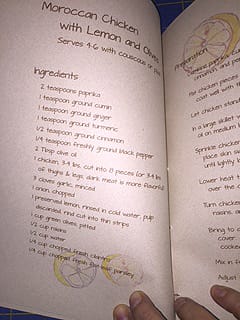 Moroccan Chicken
with Lemon and Olives
Serves 4-6 with couscous or
Ingredients
2 teaspoons paprika
1 teaspoon ground cumin
1 teaspoon ground ginger
1 teaspoon ground turmeric
1/2 teaspoon ground cinnamon
1/4 teaspoon freshly ground black pepper
2 Tbsp olive oil
1 chicken, 3-4 lbs, cut into 8 pieces (or 3-4 lbs
of thighs & legs, dark meat is more flavorful)
3 cloves garlic, minced
1 onion, chopped
1 preserved lemon, rinsed in cold water, pulp
discarded, rind cut into thin strips
1 cup green olives, pitted
1/2 cup raisins
1/2 cup water
1/4 cup chopped fresh cilantro
1/4 cup chopped fresh flat parsley
Preparation
Combine paprika, cumin
cinnamon, and
Put chicken pieces
coat well with the
Let chicken stand
In a large skillet
oil on medium
Sprinkle chicken
place skin side
until lightly
Lower heat
over the
Turn chicken
and
Bring to
cover
cooked
Mix in
Adjust